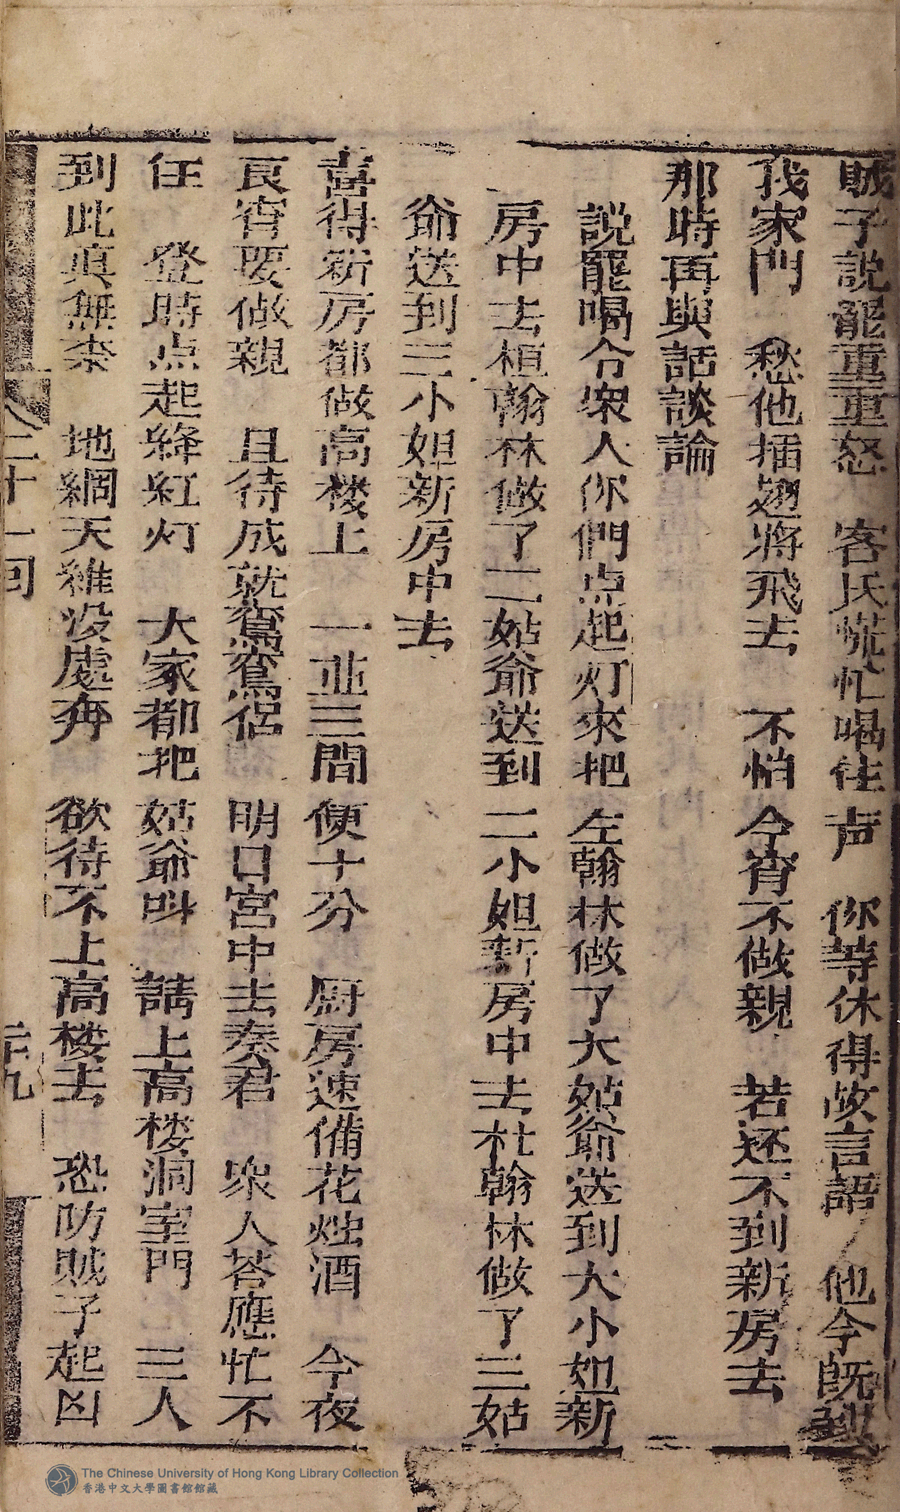 賊子説罷重重怒　客氏慌忙喝住声　你等休得故言語　他今既到
我家門　愁他插翅將飛去　不怕今宵不做親　若还不到新房去
那時再與話談論
説罷喝令衆人你們点起灯來把左翰林做了大姑爺送到大小姐新
房中去桓翰林做了二姑爺送到二小姐新房中去杜翰林做了三姑
爺送到三小姐新房中去
喜得新房都做高楼上　一並三間便十分　厨房速備花烛酒　今夜
良宵要做親　且待成就鴛鴦侣　明日宮中去奏君　衆人荅應忙不
住　登時点起絳紅灯　大家都把姑爺叫　請上高楼洞室門　三人
到此真無柰　地網天維没處奔　欲待不上高楼去　恐防賊子起凶
二十一回
二十九
The Chinese University of Hong Kong Library Collection
香港中文大學圖書館館藏